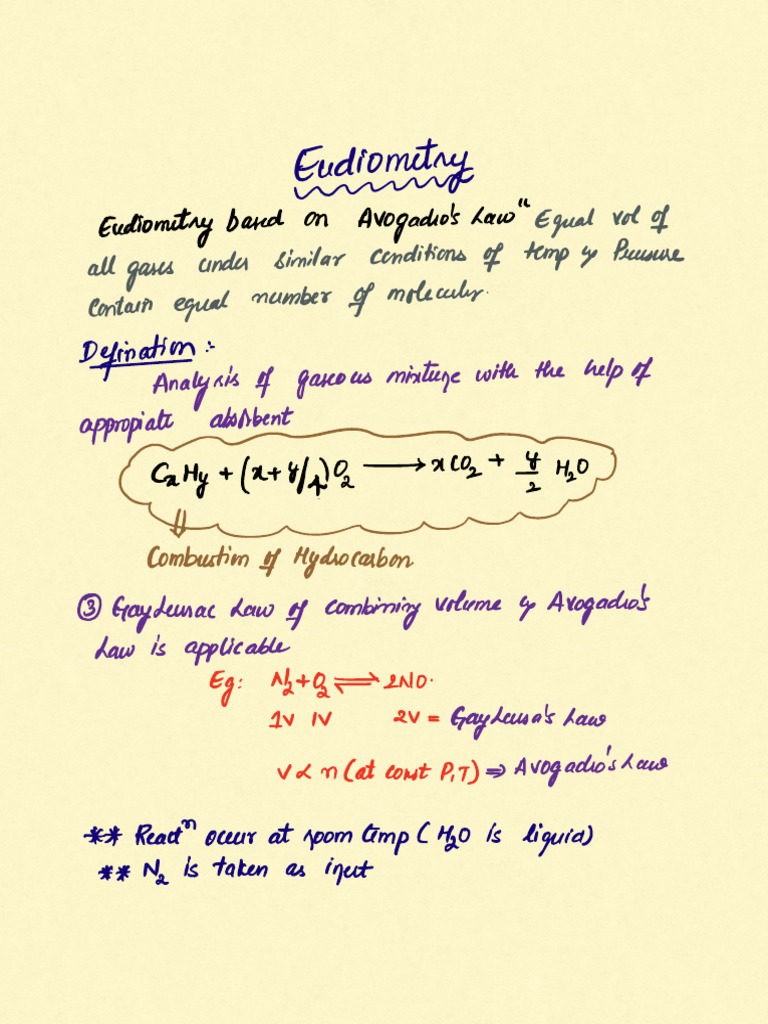 Eudiometry
Eudiometry based on Avogadro's Law" Equal vol of
all gases under similar conditions of temp & Pressure
contain equal number of molecules.
Defination :-
Analysis of gaseous mixture with the help of
appropiate absorbent
CxHy + (x+y/4)O₂ ⟶ xCO₂ + y/2 H₂O
⇓
Combustion of Hydrocarbon
③ Gayleusac Law of combining volume & Avogadro's
Law is applicable
Eg: N₂+O₂ ⇌ 2NO.
1V 1V 2V = Gayleusa's Law
V∝n (at const P,T) ⇒ Avogadro's Law
** Reactⁿ occur at room temp (H₂O is liquid)
** N₂ is taken as inert